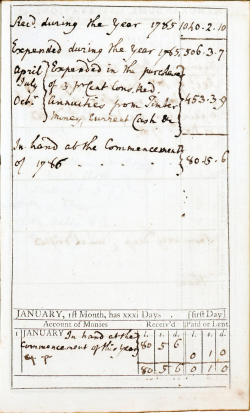 Recd. during the Year 1785 1040.2.10
Expended during the Year 1785, 506.3.7
April Expended in the purchase
July of 3 pr Cent Cons. Red.
Octr. Annuities from Timber 453.3.9
Money, Current Cash &c
In hand at the Commencement
of 1786 . . . . 80.5.6
JANUARY, 1st Month, has xxxi Days. [first Day]
Account of Monies Receiv'd Paid or Lent
l. s. d. l. s. d.
1 JANUARY In hand at the
Commencement of this Year 80 5 6
0 1 0
80 5 6 0 1 0